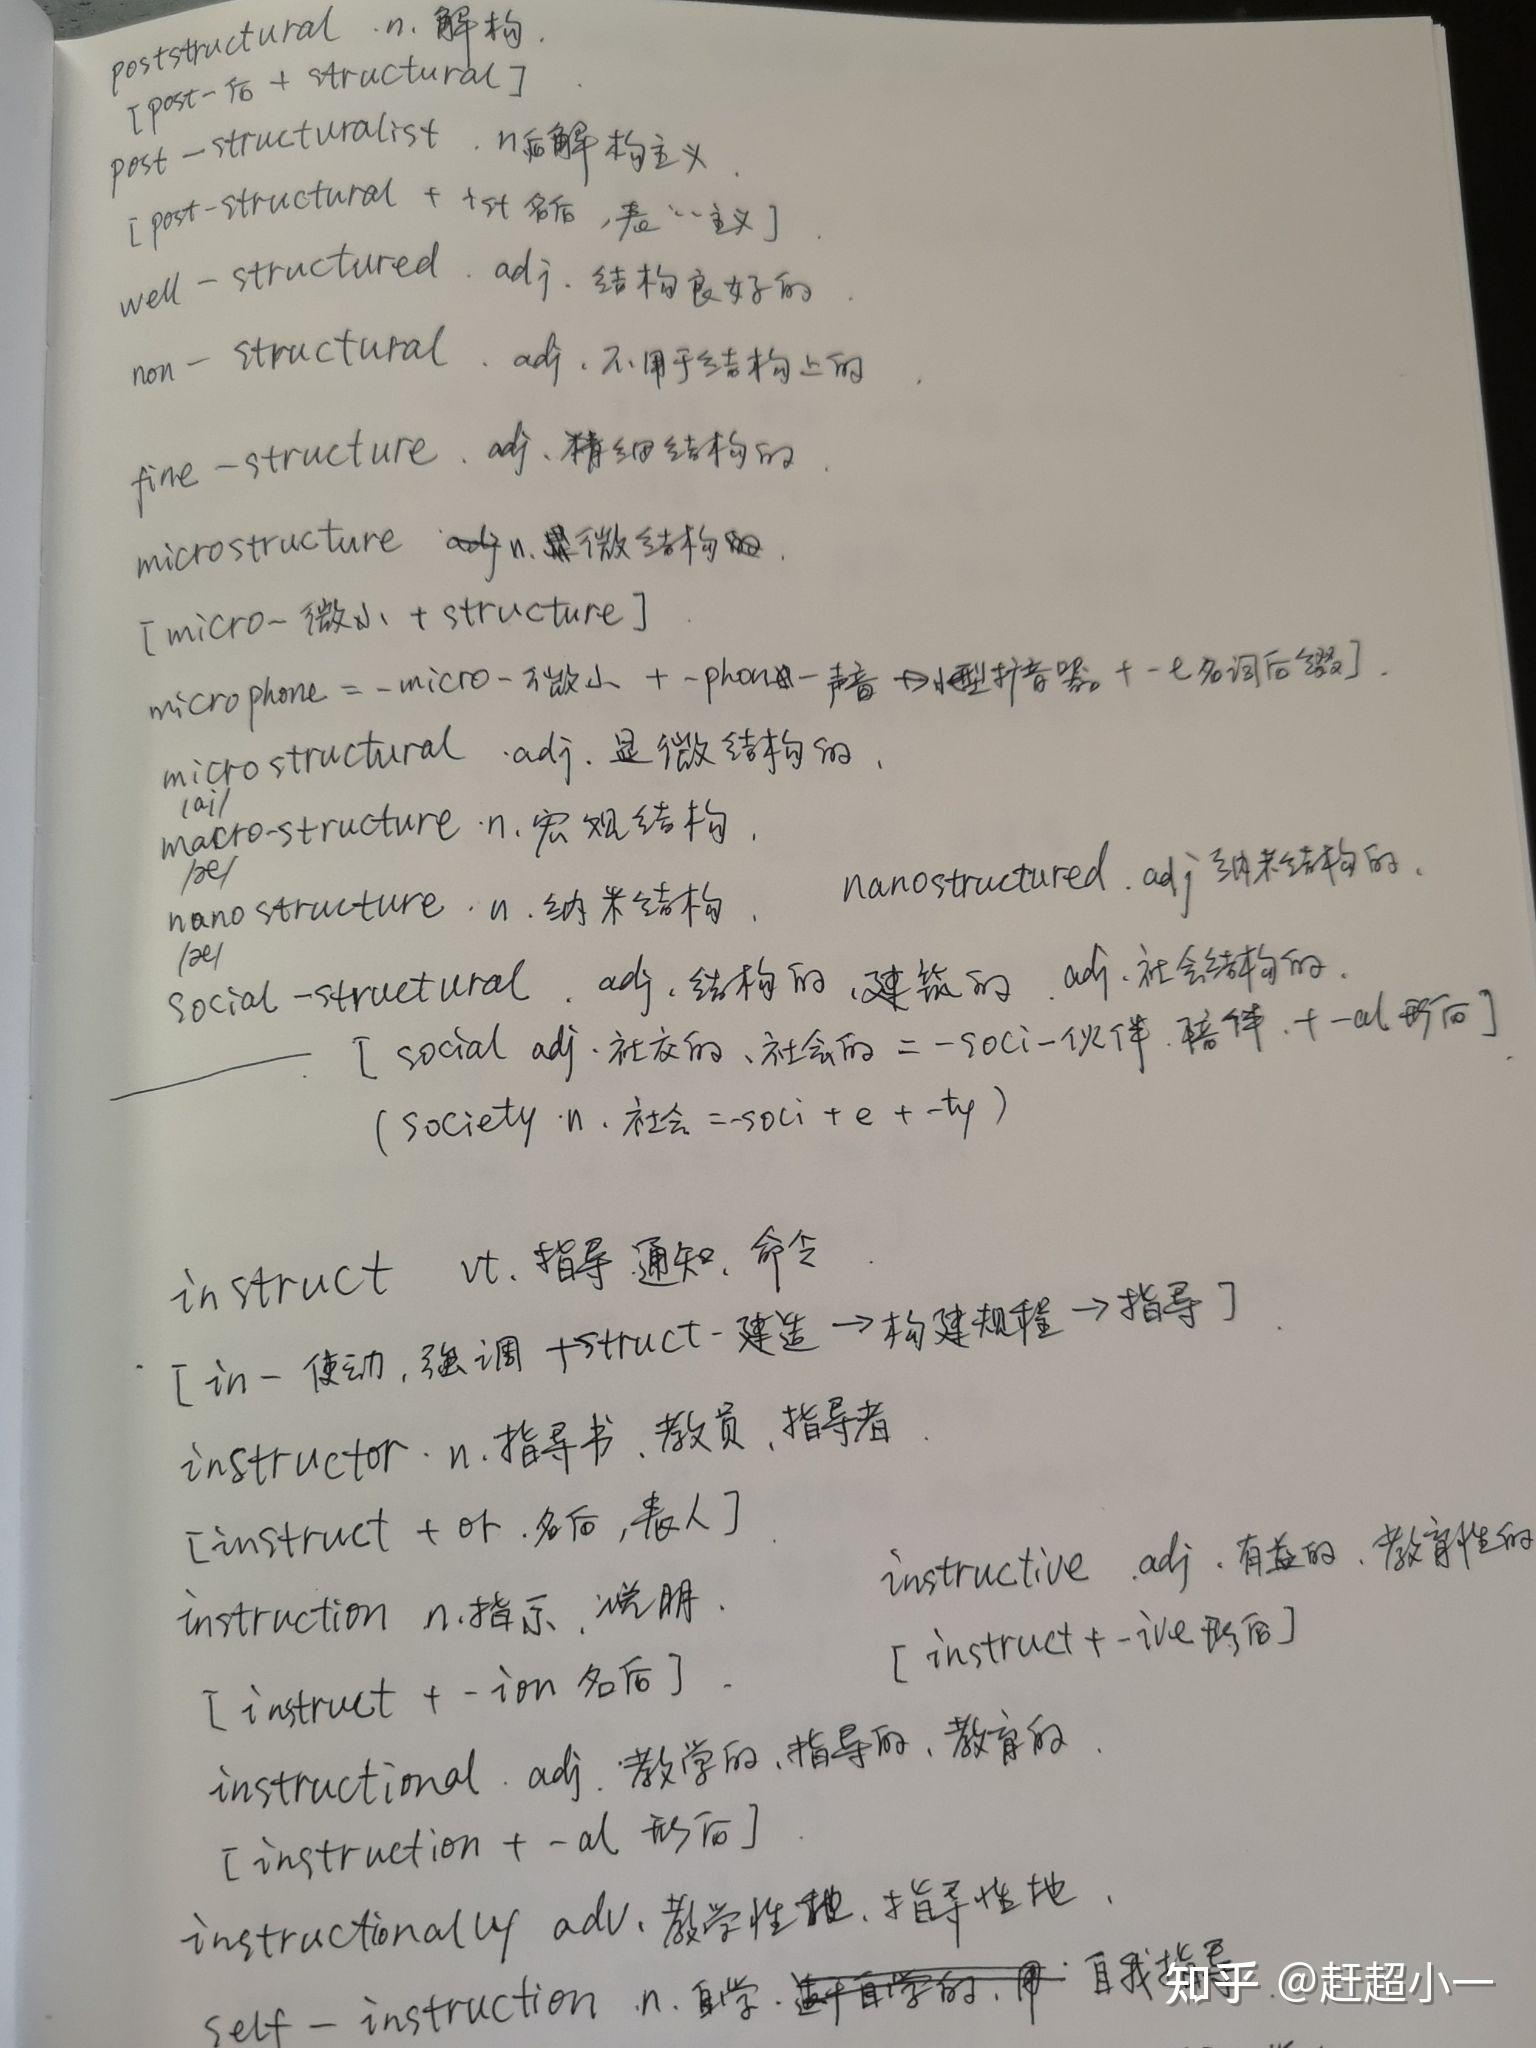 poststructural .n. 解构.
[post-后 + structural]
post-structuralist .n后解构主义
[post-structural + ist 名后, 表…主义]
well-structured . adj. 结构良好的.
non-structural . adj. 不用于结构上的.
fine-structure . adj. 精细结构的.
microstructure n. 微结构.
[micro- 微小 + structure]
microphone = -micro- 微小 + -phon- 声音 → 小型扩音器 + -e名词后缀].
microstructural .adj. 显微结构的.
/ai/
macro-structure .n. 宏观结构.
/æ/
nanostructure .n. 纳米结构. nanostructured .adj 纳米结构的.
/æ/
social-structural . adj. 结构的、建筑的 . adj. 社会结构的.
[social adj. 社交的、社会的 = -soci-伙伴.陪伴. + -al 形后]
(society .n. 社会 = -soci + e + -ty)
instruct vt. 指导.通知、命令.
[in- 使动,强调 + struct- 建造 → 构建规程 → 指导].
instructor . n. 指导书、教员、指导者.
[instruct + or .名后,表人]
instruction n.指示、说明. instructive .adj. 有益的、教育性的
[instruct + -ion 名后]. [instruct + -ive 形后]
instructional . adj. 教学的、指导的、教育的.
[instruction + -al 形后].
instructionally adv. 教学性地、指导性地.
self-instruction .n. 自学. 自我指导
知乎 @赶超小一